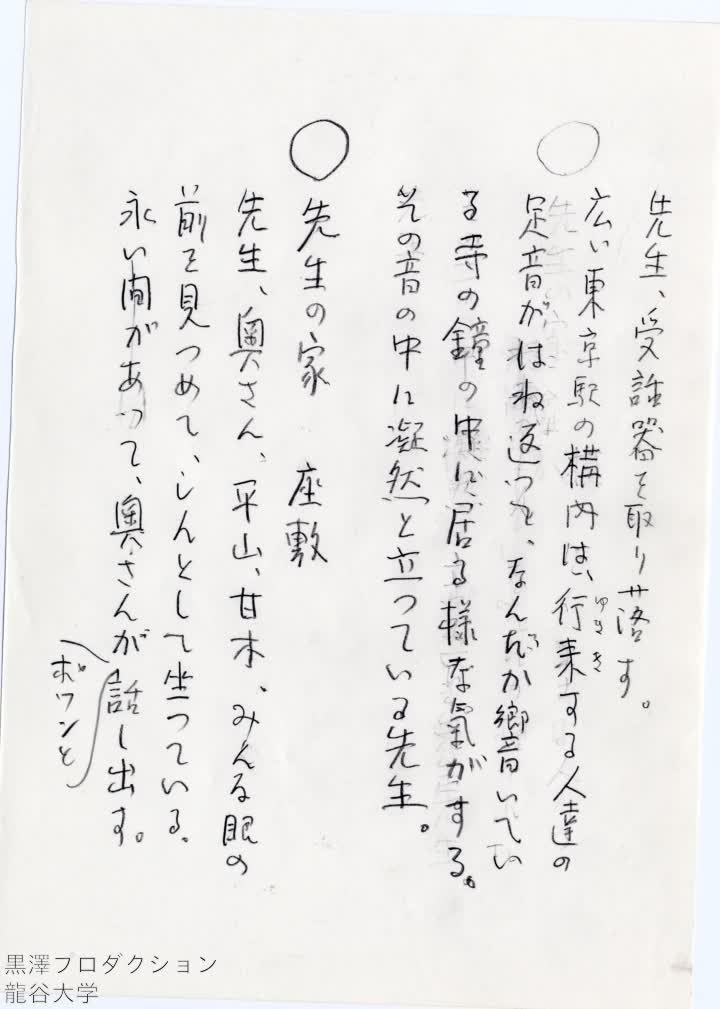 先生、受話器を取り落す。
広い東京駅の構内は、行来する人達の
ゆきき
足音がはね返つて、なんだか響いてい
る寺の鐘の中に居る様な氣がする。
その音の中に凝然と立つている先生。
○
○
先生の家　座敷
先生、奥さん、平山、甘木、みんな眼の
前を見つめて、じんとして坐つている。
永い間があつて、奥さんが話し出す。
ポツンと
黒澤プロダクション
龍谷大学